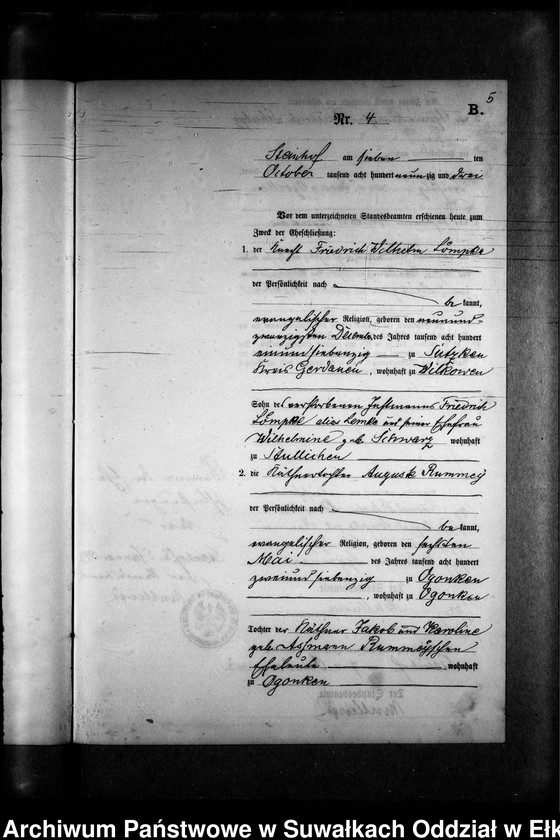 5
B.
Nr. 4
Steinhof am sieben ten
October tausend acht hundert neunzig und drei
Vor dem unterzeichneten Standesbeamten erschienen heute zum
Zweck der Eheschließung:
1. der Knecht Friedrich Wilhelm Lömpke
der Persönlichkeit nach
be kannt,
evangelischer Religion, geboren den neunund-
zwanzigsten Dezember des Jahres tausend acht hundert
einundsiebenzig zu
Kreis Gerdauen, wohnhaft zu Wilkowen
Sohn des verstorbenen Instmanns Friedrich
Lömpke alias Lemke und seiner Ehefrau
Wilhelmine geb. Schwarz wohnhaft
zu Stullichen
2. die Käthnertochter Auguste Rummey
der Persönlichkeit nach
be kannt,
evangelischer Religion, geboren den sechsten
Mai des Jahres tausend acht hundert
zweiundsiebenzig zu Ogonken
, wohnhaft zu Ogonken
Tochter der Käthner Jakob und Karoline
geb. Assmann Rummeyschen
Eheleute wohnhaft
zu Ogonken
Archiwum Państwowe w Suwałkach Oddział w Ełk